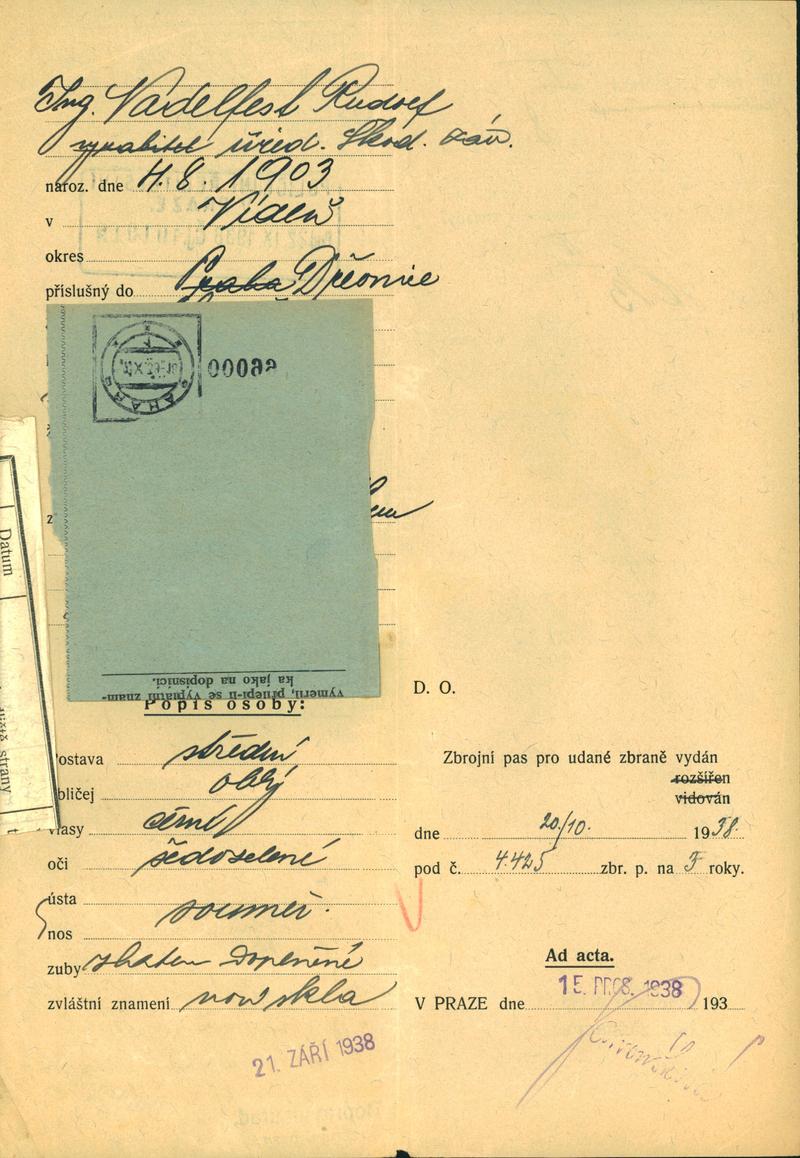 Ing. Nadelfest Rudolf
úřed. Škod. záv.
naroz. dne 4.8. 1903
v Vídeň
okres
příslušný do Praha Dřevnice
00089
z
Datum
strany
vyměril, přilepí-li se výplatní znam-
ka jako na dopisnici.
Popis osoby:
Postava střední
obličej oblý
vlasy černé
oči šedozelené
ústa
nos souměr.
zuby zlatem doplněné
zvláštní znamení nosí skla
21. ZÁŘÍ 1938
D. O.
Zbrojní pas pro udané zbraně vydán
rozšířen
vidován
dne 20/10. 1938.
pod č. 4.425 zbr. p. na 3 roky.
Ad acta.
V PRAZE dne 15. PROS. 1938 193